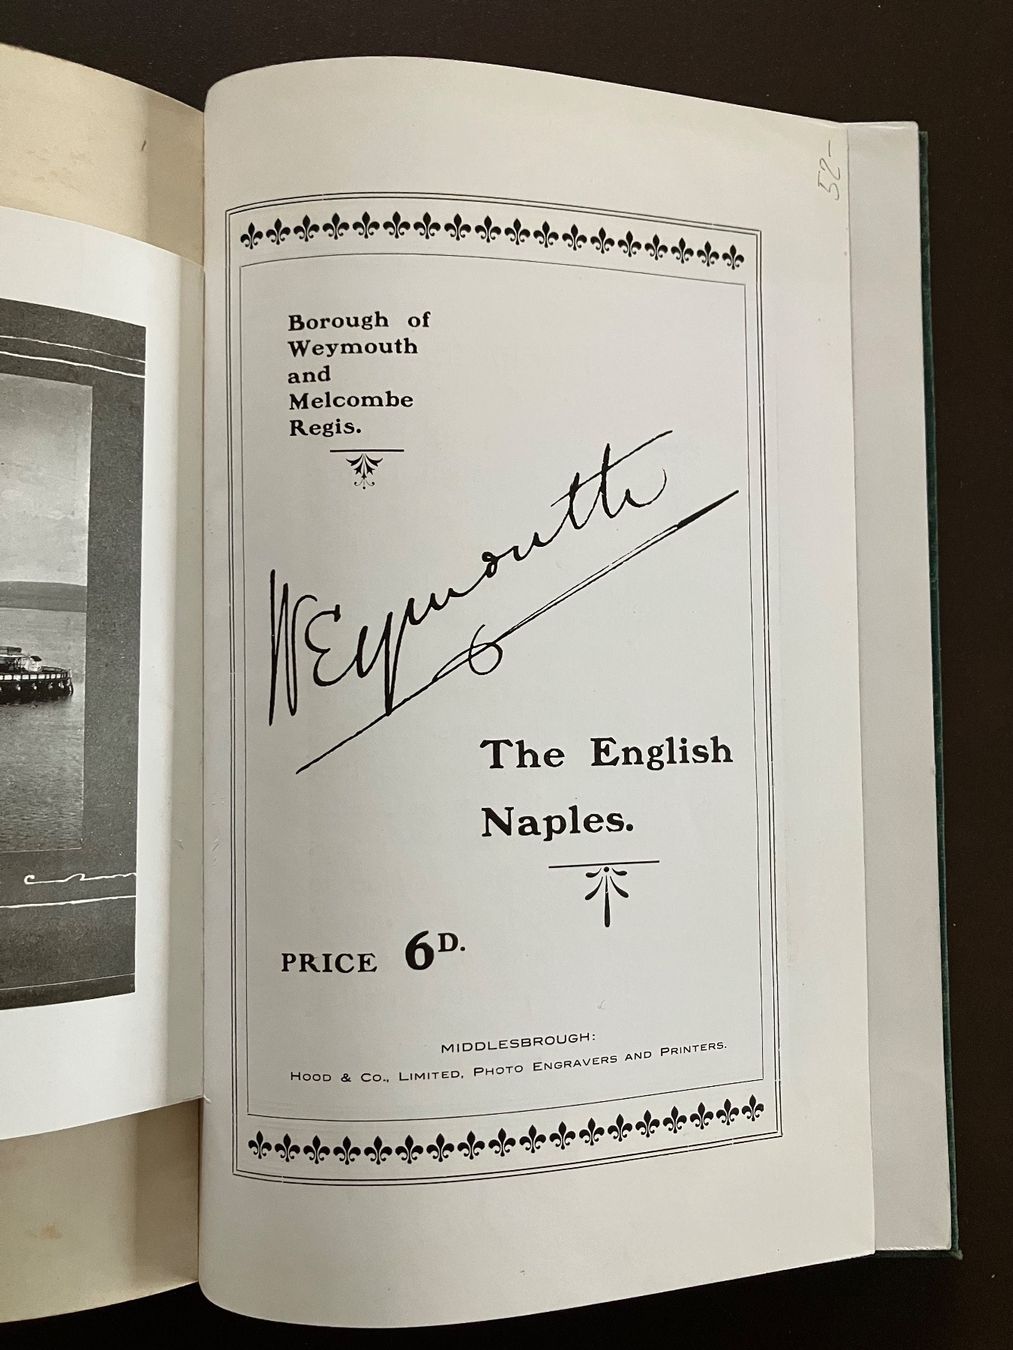 52-
Borough of
Weymouth
and
Melcombe
Regis.
WEymouth
The English
Naples.
PRICE 6D.
MIDDLESBROUGH:
HOOD & CO., LIMITED, PHOTO ENGRAVERS AND PRINTERS.